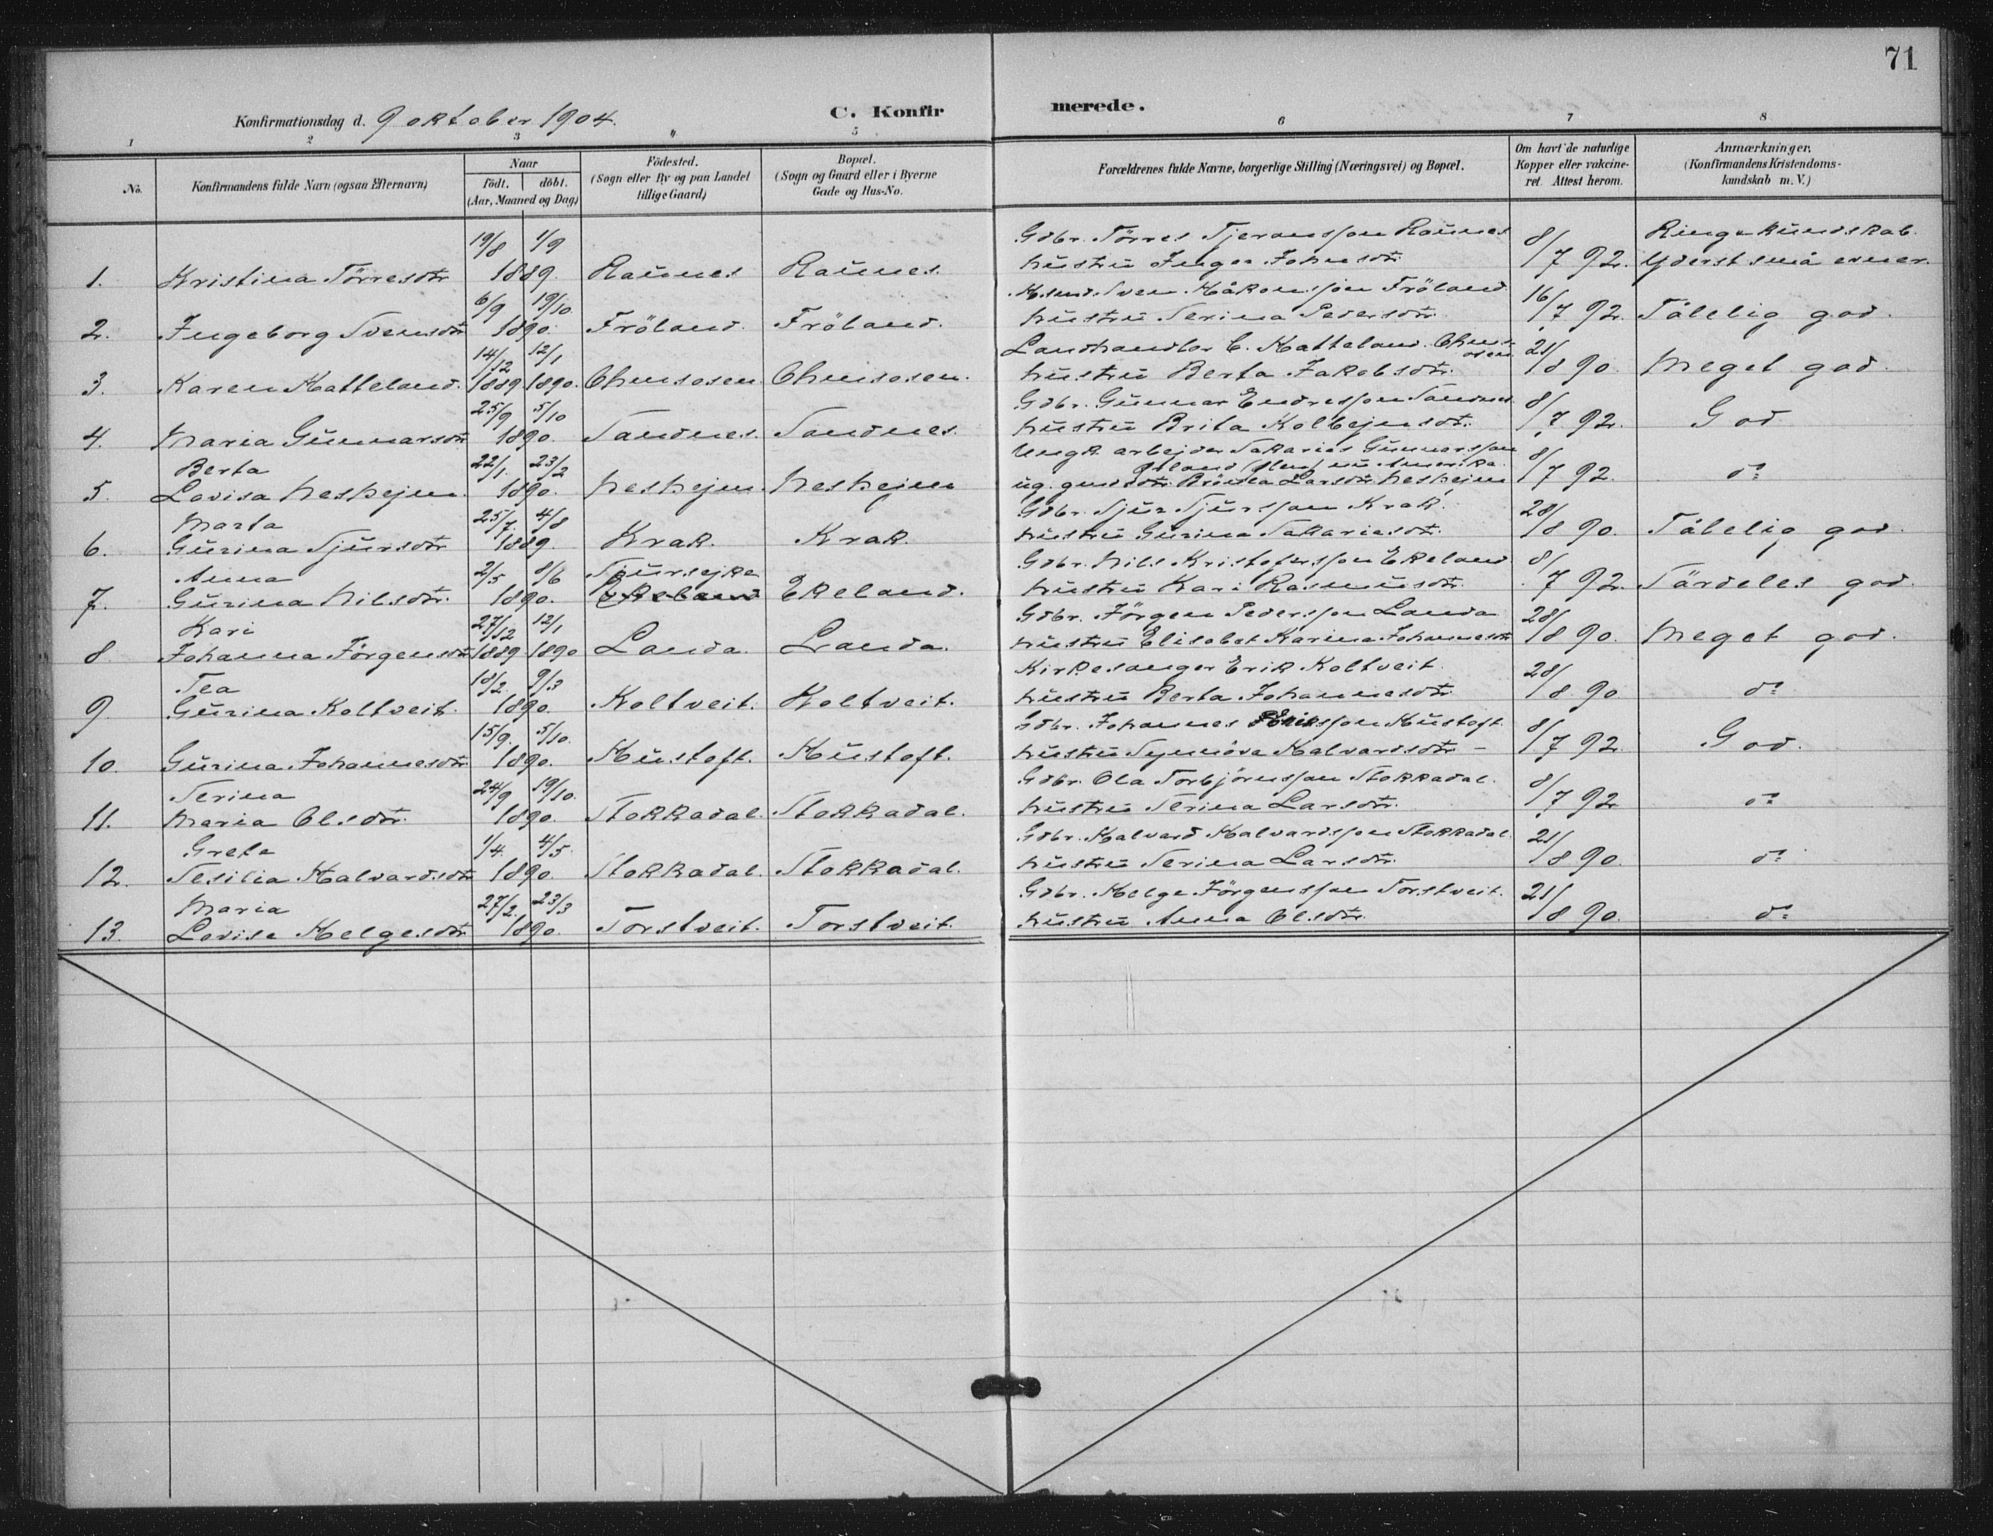 71
Konfirmationsdag d. 9 oktober 1904.
C. Konfirmerede.
1 2 3 " 5 6 7 8
No. Konfirmandens fulde Navn (ogsaa Efternavn) Naar født. døbt. (Aar, Maaned og Dag) Födested. (Sogn eller By og paa Landet tillige Gaard) Bopæl. (Sogn og Gaard eller i Byerne Gade og Hus-No. Forældrenes fulde Navne, borgerlige Stilling (Næringsvei) og Bopæl. Om havt de naturlige Kopper eller vaccineret. Attest herom. Anmærkninger. (Konfirmandens Kristendomskundskab m. V.)
19/8 1/9 Gdbr. Törres Tjeransson Raunes 8/ Ringe kundskab.
1. Kristina Törresdtr 1889. Raunes Raunes. hustru Inger Johnsdtr. 7 92. Yderst små evner.
6/9 19/10 Husmd. Sven Håkonsson Fröland 16/
2. Ingeborg Svensdtr 1890. Fröland. Fröland. hustru Serina Pedersdtr. 7 92. Tålelig god.
14/12 12/1 Landhandler C. Hatteland. Ohmsosen 21/
3. Karen Hatteland. 1889 1890. Ohmsosen Ohmsosen. hustru Berta Jakobsdtr. 8 90. Meget god.
25/9 5/10 Gdbr. Gunnar Endresson Sandnes 8/
4. Maria Gunnarsdtr 1890. Sandnes. Sandnes. hustru Brita Kolbejnsdtr. 7 92. God
Berta 22/1. 23/2 Ungk. arbejder Sakarias Gunnarsson 8/
Ölen, nu Amerika.
5. Lovisa Neshejm. 1890. Neshejm. Neshejm ug. gmdsdtr. Larsdtr. Neshejm 7 92. do
Marta 25/7. 4/8 Gdbr. Sjur Sjursson Krak. 28/
6. Gurina Sjursdtr 1889. Krak. Krak. hustru Gurina Sakariasdtr. 8 90. Tålelig god.
Anna 2/5 8/6 Sjursejke Gdbr. Nils Kristofersson Ekeland 8/
7. Gurina Nilsdtr. 1890. Ekeland Ekeland. hustru Kari Rasmusdtr. 7 92. Särdeles god.
Kari 27/12 12/1 Gdbr. Jörgen Pedersson Landa 28/
8. Johanna Jörgensdtr 1889 1890 Landa. Landa. hustru Elisabet Karina Johannesdtr 8 90. Meget god.
Tea 10/2. 9/3 Kirkesanger Erik Koltveit. 28/
9. Gurina Koltveit. 1890. Koltveit. Koltveit. hustru Berta Johannesdtr 8 90 do
15/9. 5/10. Gdbr. Johannes Eriksson Hustoft. 8/
10. Gurina Johannesdtr 1890. Hustoft. Hustoft. hustru Synnöva Halvardsdtr – 7 92. God.
Serina 24/9 19/10. Gdbr. Ola Torbjörnsson Stokkadal. 8/
11. Maria Olsdtr. 1890. Stokkadal. Stokkadal. hustru Serina Larsdtr. 7 92. do
Greta 1/4. 4/5. Gdbr. Halvard Halvardsson Stokkadal. 21/
12. Sesilia Halvardsdtr 1890. Stokkadal. Stokkadal. hustru Serina Larsdtr. 8 90. do
Maria 27/2. 23/3 Gdbr. Helge Jörgensson Torstveit. 21/
13. Lovise Helgesdtr. 1890. Torstveit. Torstveit. hustru Anna Olsdtr. 8 90. do